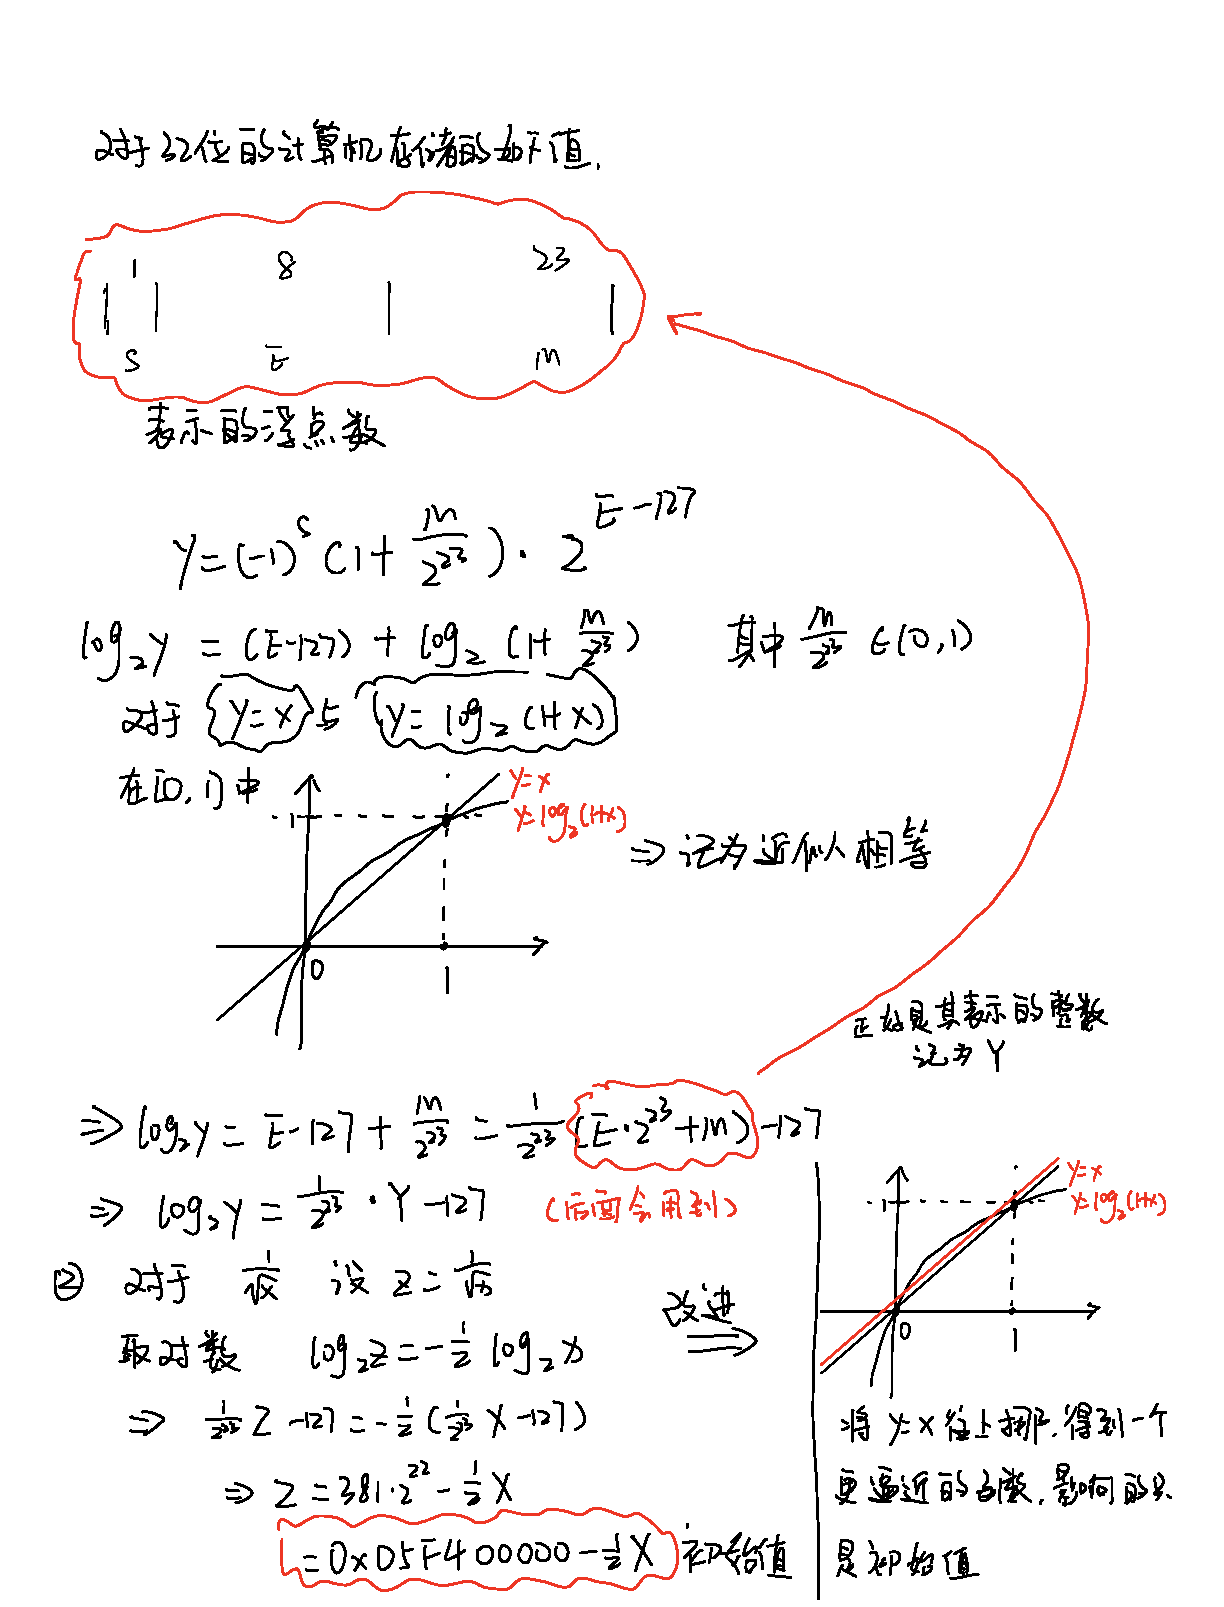 对于32位的计算机存储的如下值.
1 8 23
S E M
表示的浮点数
y=(-1)^S (1+M/2^23)·2^(E-127)
log₂y=(E-127)+log₂(1+M/2^23) 其中 M/2^23 ∈(0,1)
对于 y=x 与 y=log₂(1+x)
在[0,1)中
y=x
y=log₂(1+x)
1
0
1
⇒记为近似相等
正好是其表示的整数
记为Y
⇒log₂y=E-127+M/2^23=1/2^23(E·2^23+M)-127
⇒log₂y=1/2^23·Y-127 (后面会用到)
② 对于 1/√x 设 z=1/√x
取对数 log₂z=-1/2 log₂x
⇒ 1/2^23 Z-127=-1/2(1/2^23 X-127)
⇒Z=381·2^22-1/2X
=0x05F400000-1/2X 初始值
改进
⇒
y=x
y=log₂(1+x)
1
0
1
将y=x往上挪.得到一个
更逼近的函数.影响的只
是初始值